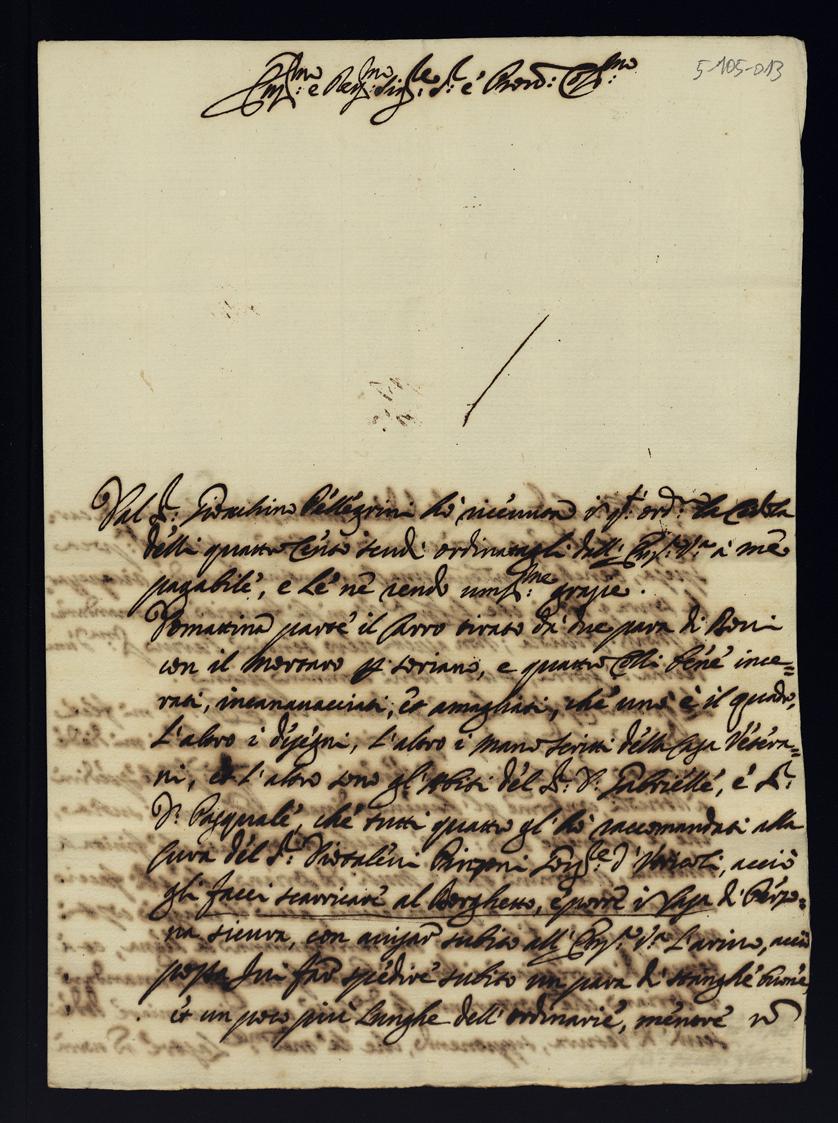 5-105-013
Ill:mo e Rev:mo Sig:re S:r e Pron: Col:mo
Dal S:r Gioachino Pellegrini hò ricevuto i q:to ord:o la Cedola
delli quattro Cento scudi ordinatagli dall' V:a à me
pagabile, e le ne rendo um:me grazie.
Domattina parte il Carro tirato da due para di Bovi
con il mortaro p Soriano, e quattro Colli bene ince=
rati, incanavacciati, et amagliati, che uno è il quadro,
L'altro i disegni, L'altro i Mano Scritti della Casa Vetera=
ni, et L'altro sono gl'Abiti del S:r D: Gabrielle, e S:r
D: Pasquale, che tutti quattro gl'hò raccomandati alla
Cura del S:r Pinzoni d'Otricoli, acciò
gli facci scarricare al Borghetto, e porre i Casa di Perso=
na sicura, con avisar subito all' V:a L'arivo, acciò
possa far spedire subito un para di stanghe buone,
et un poco più Lunghe dell'ordinarie, mentre